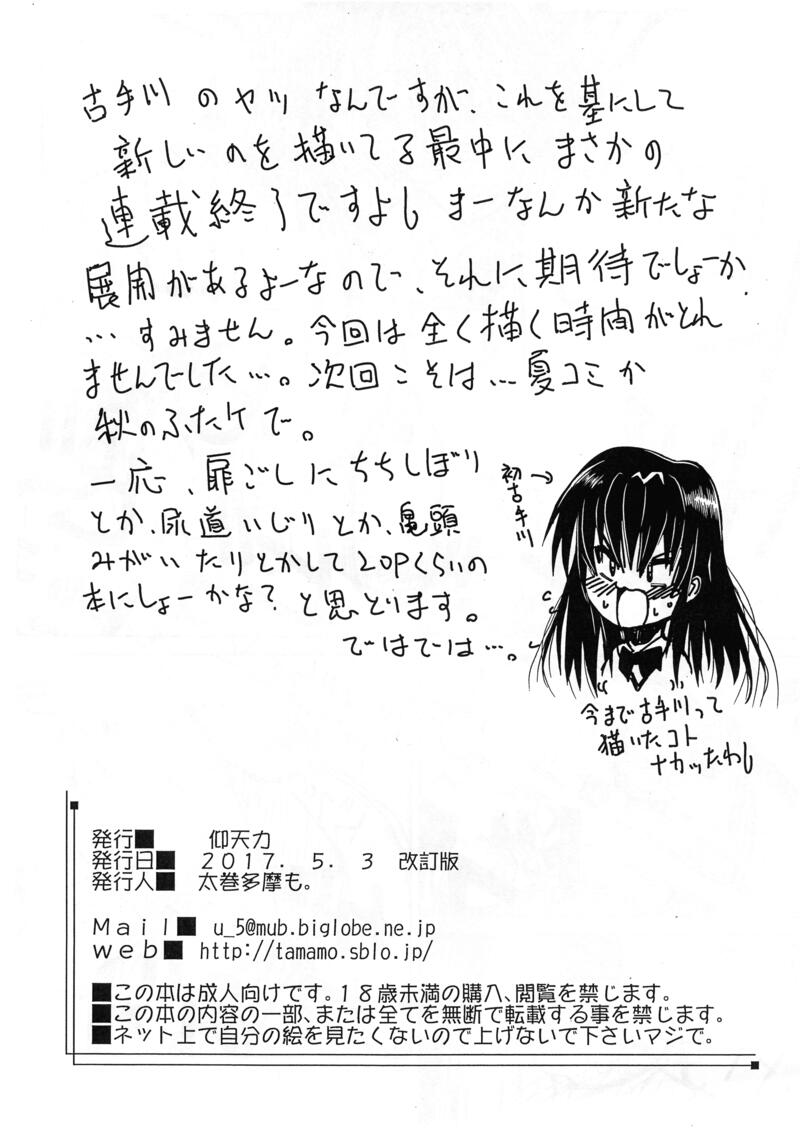 古手川のヤツなんですが、これを墓にして
新しいのを描いてる最中にまさかの
連載終了ですよし まーなんか新たな
展開があるよーなので、それに期待でしょーか
…すみません。今回は全く描く時間がとれ
ませんでした…。次回こそは…夏コミか
秋のふたケで。
一応、扉ごしにちちしぼり
とか、尿道いじりとか、亀頭
みがいたりとかして20Pくらいの
本にしょーかな？と思とります。
ではでは…。
初古手川
今まで古手川って
描いたコト
ナカッたわし
発行■ 仰天力
発行日■ 2017. 5. 3 改訂版
発行人■ 太巻多摩も。
Mail■ u_5@mub.biglobe.ne.jp
web■ http://tamamo.sblo.jp/
■この本は成人向けです。18歳未満の購入、閲覧を禁じます。
■この本の内容の一部、または全てを無断で転載する事を禁じます。
■ネット上で自分の絵を見たくないので上げないで下さいマジで。